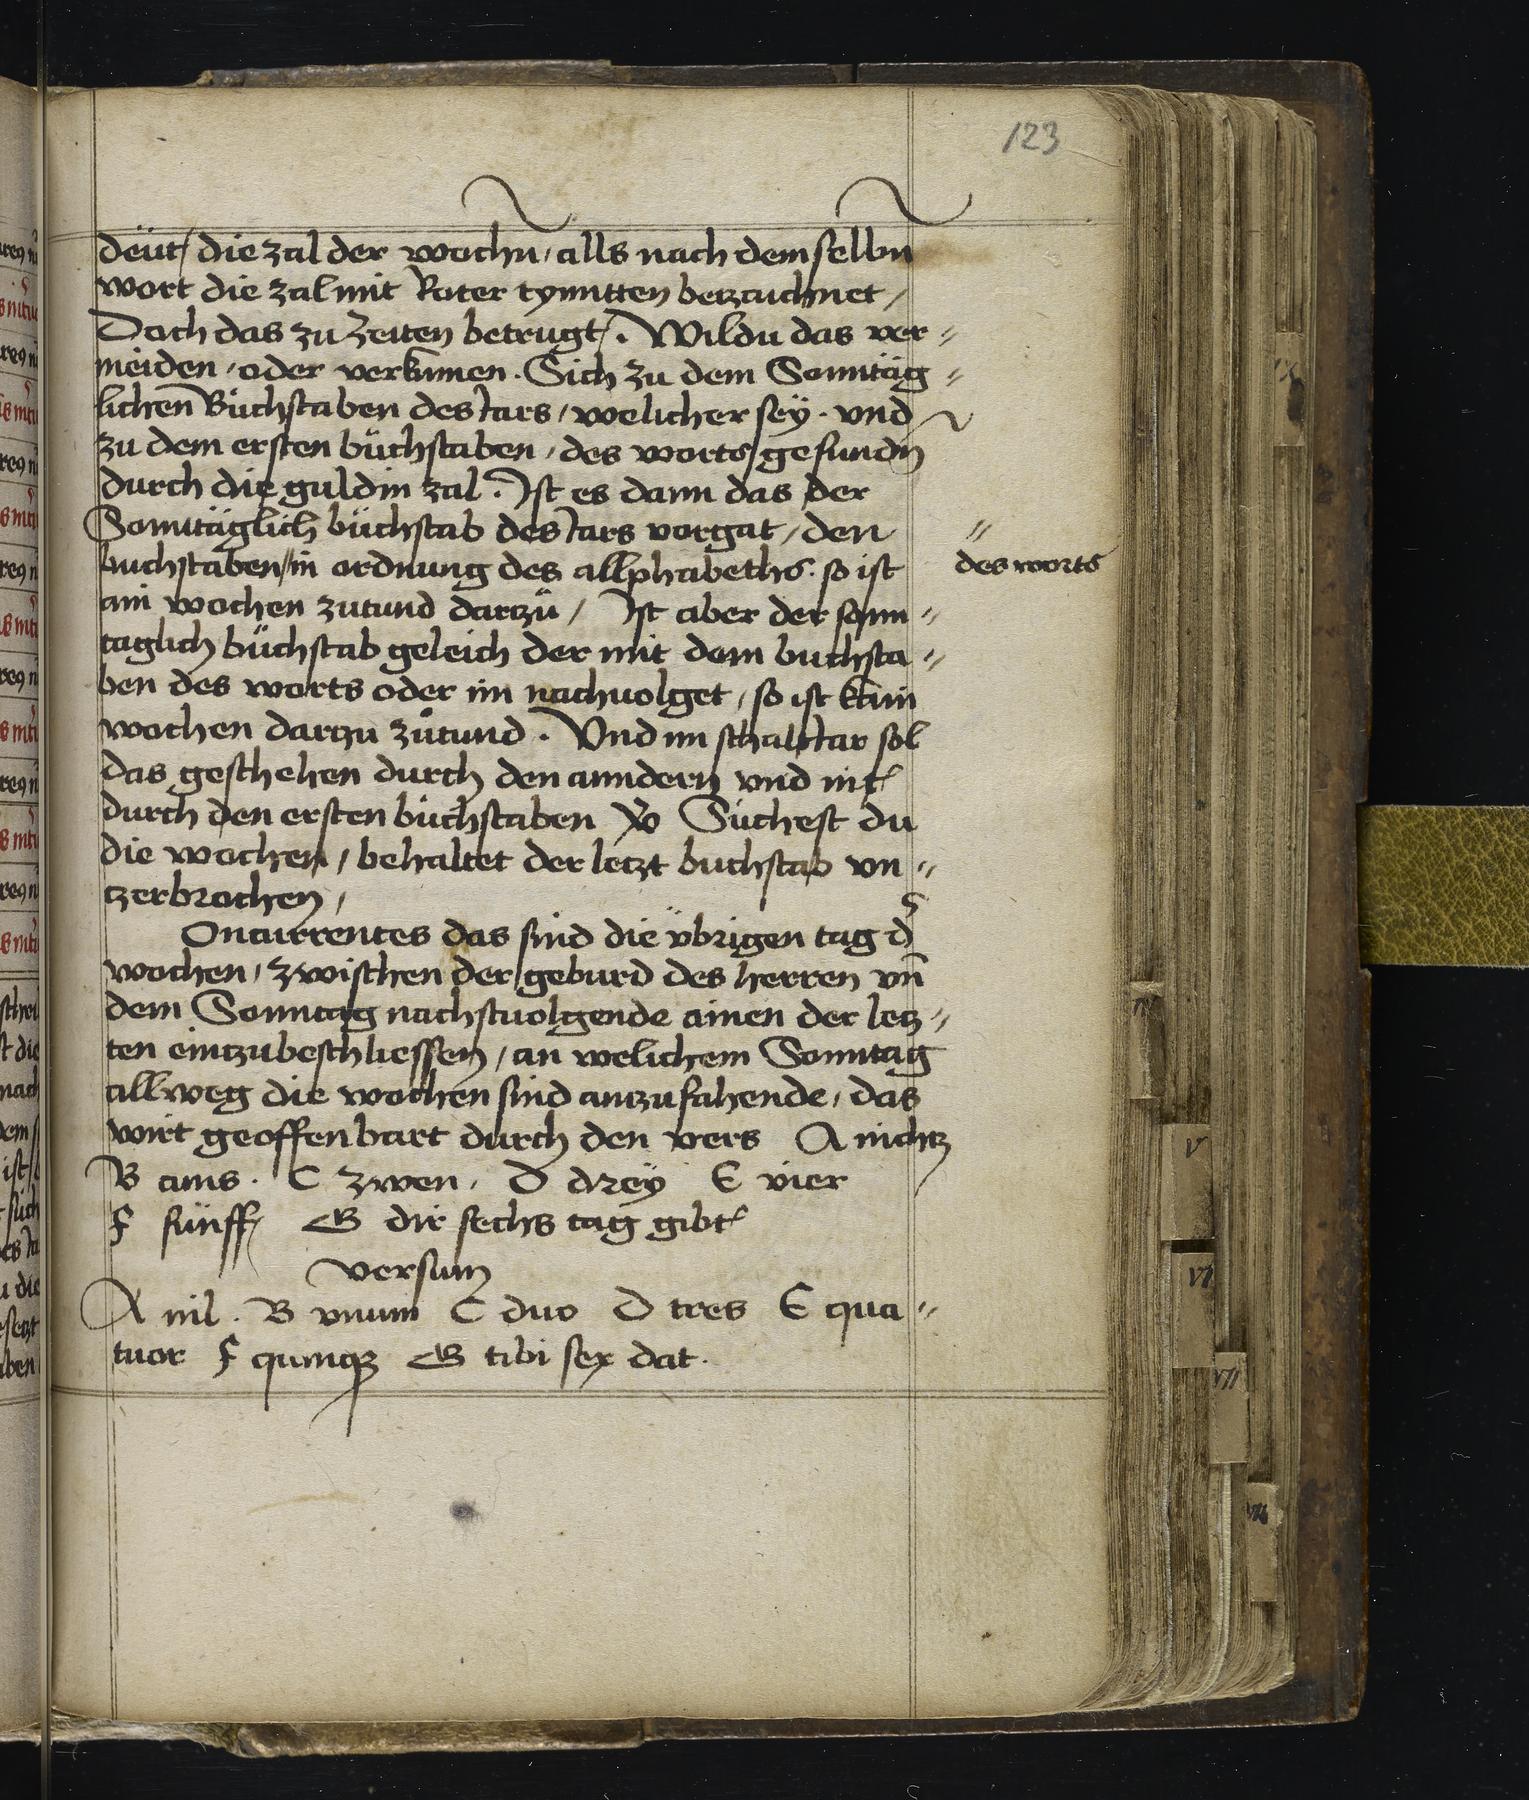 123
deüt / die zal der wochn / alls nach dem selbn
wort die zal mit Roter tynntten bezaichnet /
Doch das zu Zeiten betrugt / . Wildu das ver〃
meiden / oder verkumen . Sich zu dem Sonntäg〃
lichen Büchstaben des Iars / welicher seÿ . vnd
zu dem ersten büchstaben / des worts gefundn
durch die guldin zal . Ist es dann das der
Sonntäglich büchstab des Iars vorgat / den
buchstaben〃 in ordnung des allphabeths . so ist
〃 des worts
ain wochen zutund darzü / Ist aber der sonn〃
taglich büchstab geleich der mit dem buchsta〃
ben des worts oder im nachuolget / so ist kain
wochen darzu zütund . Vnd im schalt Iar sol
das geschehen durch den anndern vnd nit
durch den ersten büchstaben Süchest du
die wochen / behaltet der letzt buchstab vn〃
tzerbrochen /
Oncurrentes das sind die übrigen tag d
wochen / zwischen der geburd des herren vn̄
dem Sonntag nachstuolgende ainen der letz〃
ten eintzubeschliessen / an welichem Sonntag
allweg die wochen sind antzufahende / das
wirt geoffenbart durch den vers A nichtz
B ains . C zwen . D dreÿ E vier
F fünff / G dir sechs tag gibt
versum
A nil . B vnum C duo D tres E qua〃
tuor F quinqz G tibi sex dat .
V
VI
VII